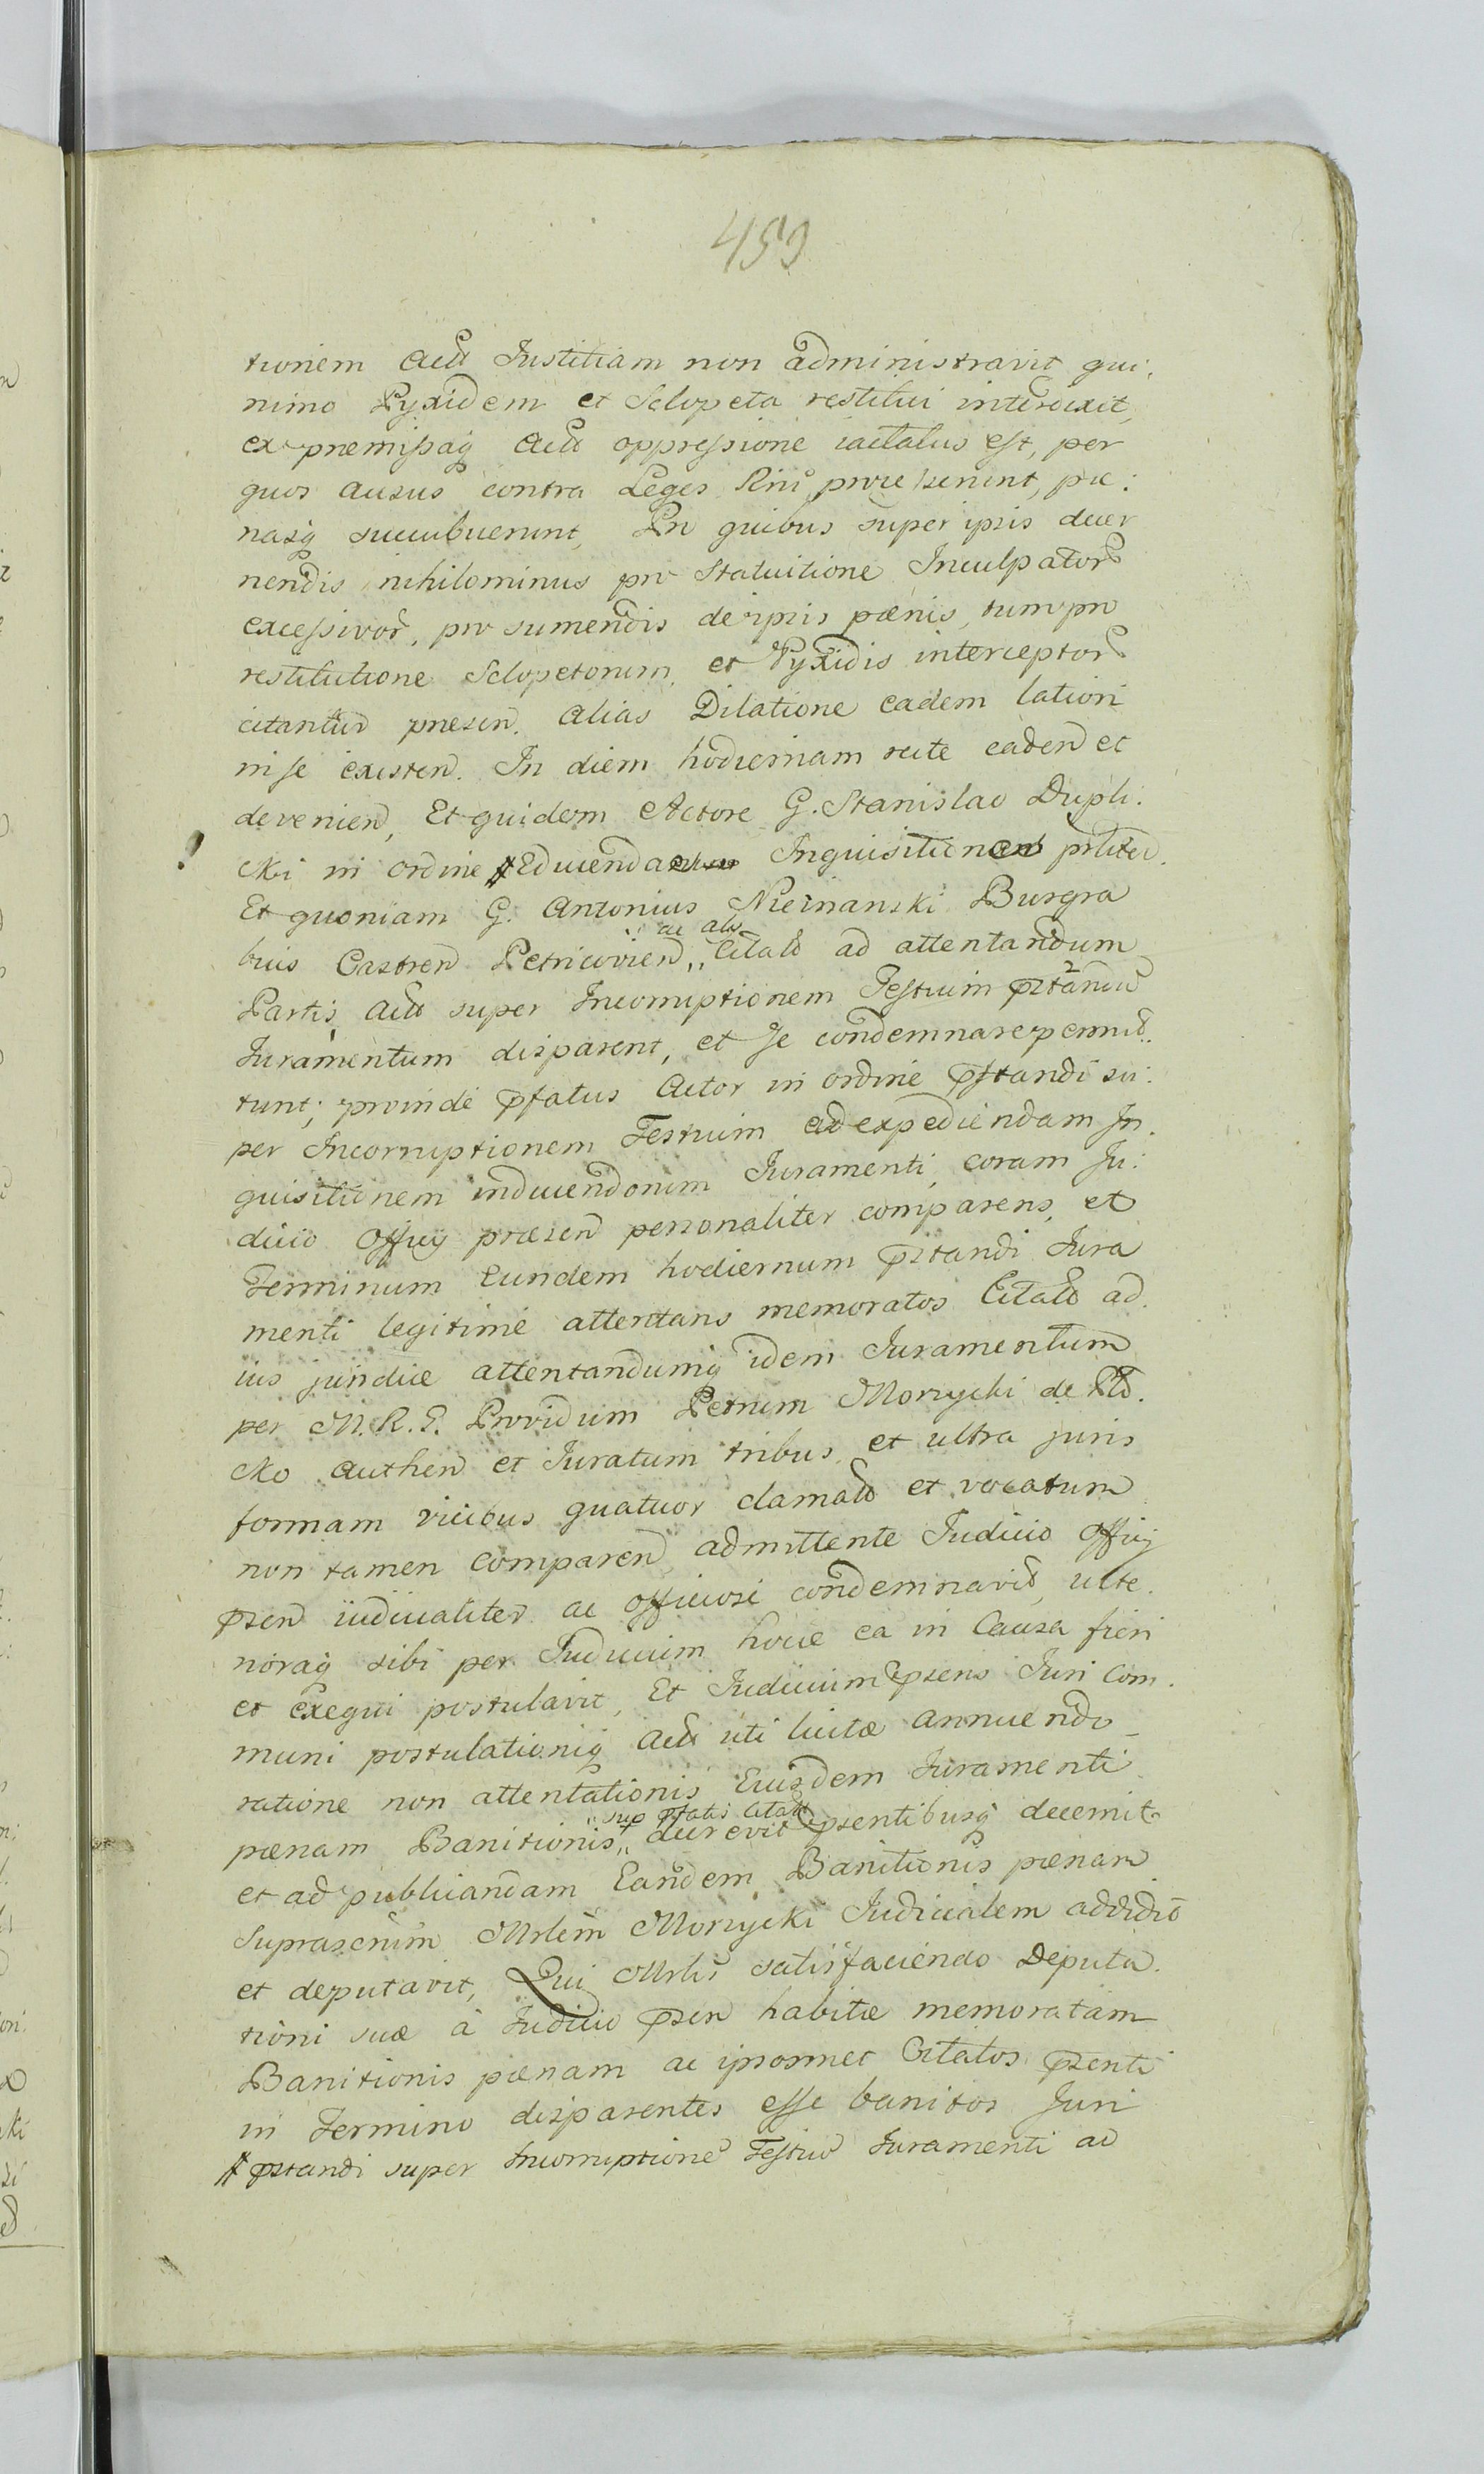 459
tionem Actõ Iustitiam non administravit qui:
nimo Pyxidem et Sclopeta restitui interdixit,
ex premissaq̃ Actõ oppressione iactatus est, per
quos ausus contra Leges Rni proruerunt, pæ:
nasq̃ succubuerunt, Pro quibus super ipsis decer
nendis nihilominus pro Statuitione Inculpatorũ
excessivor̃, pro sumendis de ipsis pœnis, tum pro
restitutione Sclopetorum, et Pyxidis interceptorũ
citantur presen̄. alias Dilatione eadem lationi
nisse existen̄. In diem hodiernam recte caden̄ et
devenien̄, Et quidem Actore G. Stanislao Dupli:
cki in ordine # Educenda Inquisitiones
Et quoniam G. Antonius Niemanski Burgra
bius Castren̄ Petricovien̄ „ ac alij Citati ad attentandum
Partis Actõ super Incorruptionem Testium pstandũ
Iuramentum disparent, et se condemnare permit:
tunt; proinde pfatus Actor in ordine pstandi su:
per Incorruptionem Testium ad expediendam In:
quisitionem inducendorum Iuramenti, coram Iu:
dicio Officij præsen̄ personaliter comparens, et
Terminum Eundem hodiernum pstandi Iura
menti legitime attentans memoratos Citatõ ad
ius juridice attentandumq̃ idem Iuramentum
per M. R. G. Providum Petrum Morzycki de
cko authen̄ et Iuratum tribus, et ultra juris
formam vicibus quatuor clamatõ et vocatum
non tamen comparen̄, admittente Iudicio Officij
psen̄ iudicialiter ac officiose condemnavit, ulte:
rioraq̃ sibi per Iudicium hocce ea in Causa fieri
et exequi postulavit, Et Iudicium psens Iuri Com:
muni postulationiq̃ Actõ uti licitæ annuendo
ratione non attentationis Eiusdem Iuramenti
pœnam Banitionis „ sup pfatis Citatis decrevit psentibusq̃ decernit
et ad publicandam Eandem Banitionis pœnam
Suprascriũm Mrlem Morzycki Iudicialem addidit
et deputavit, Qui Mrlis satisfaciendo Deputa:
tioni suæ à Iudicio psen̄ habitæ memoratam
Banitionis pœnam ac ipsosmet Citatos psenti
in Termino disparentes esse banitos Iuri
# pstandi super Incorruptione Testiũ Iuramenti ad